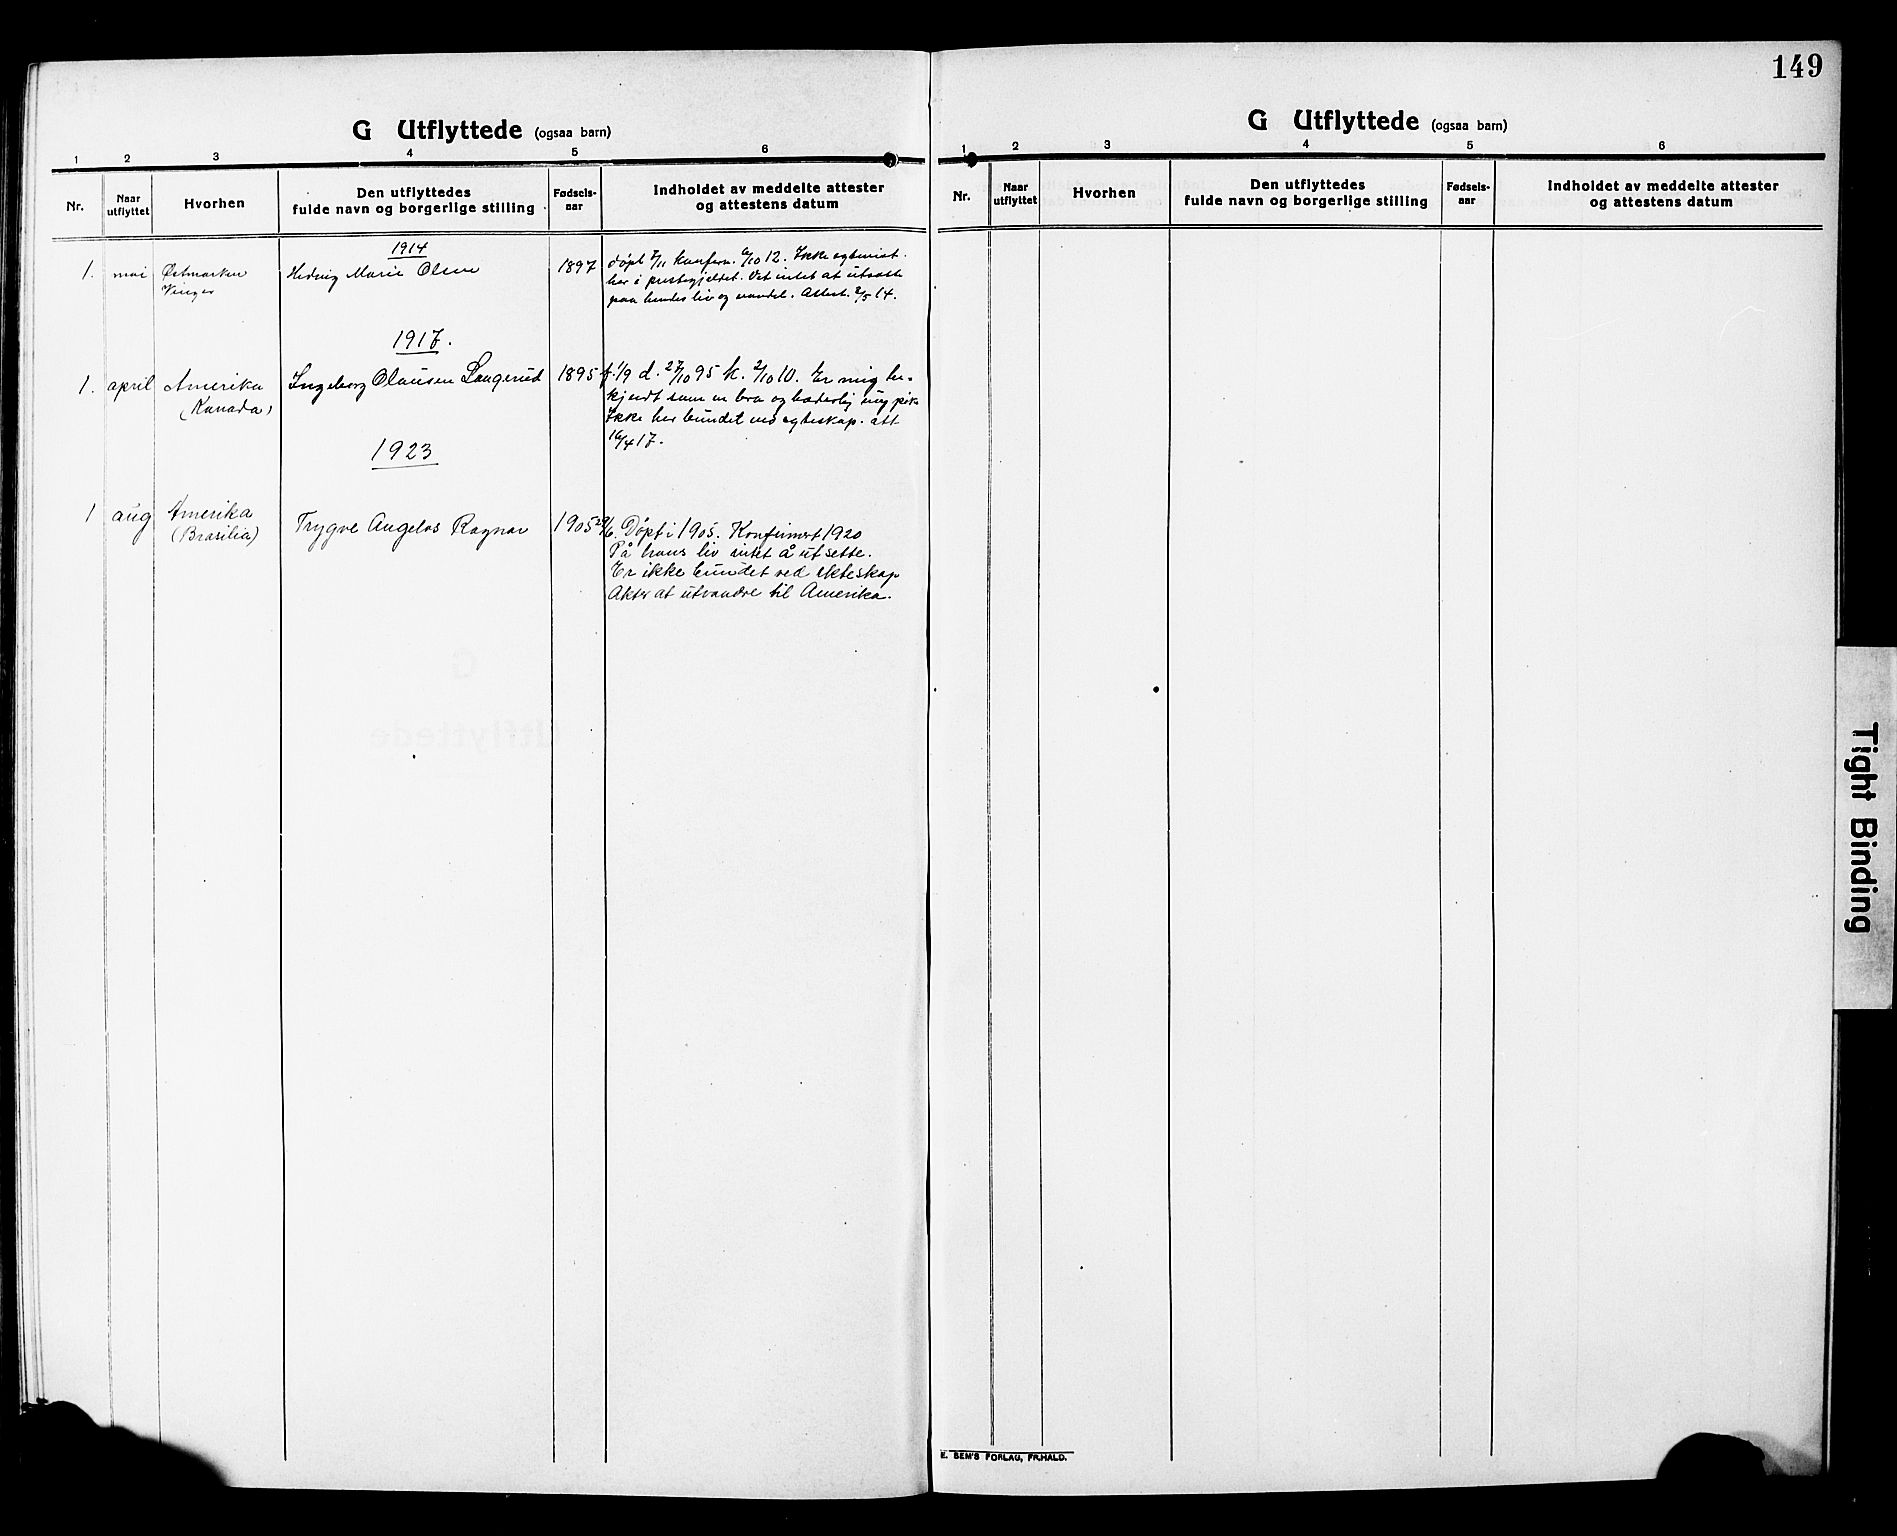 149
G Utflyttede (ogsaa barn)
1 2 3 4 5 6
Nr. Naar utflyttet Hvorhen Den utflyttedes fulde navn og borgerlige stilling Fødsels-aar Indholdet av meddelte attester og attestens datum
1914
1. mai Østmarken Hedvig Marie Olsen 1897 døpt 7/11 konfirm. 6/10 12. Ikke egteviet.
Vinger her i prestegjeldet. Vet intet at utsætte
paa hendes liv og vandel. Attest. 8/5 14.
1917.
1. april Amerika Ingeborg Clausen Langerud 1895 f. 1/9 d. 27/10 95 k. 2/10 10. Er mig be-
(Kanada) kjendt som en bra og hæderlig ung pike
Ikke her bundet ved egteskap. att
16/4 17.
1923
1 aug Amerika Trygve Angelos Ragnar 1905 29/6. Døpt i 1905. Konfirmert 1920
(Brasilia) På hans liv intet å utsette.
Er ikke bundet ved ekteskap
Akter at utvandre til Amerika.
G Utflyttede (ogsaa barn)
1 2 3 4 5 6
Nr. Naar utflyttet Hvorhen Den utflyttedes fulde navn og borgerlige stilling Fødsels-aar Indholdet av meddelte attester og attestens datum
E. SEM'S FORLAG, FR.HALD.
Tight Binding